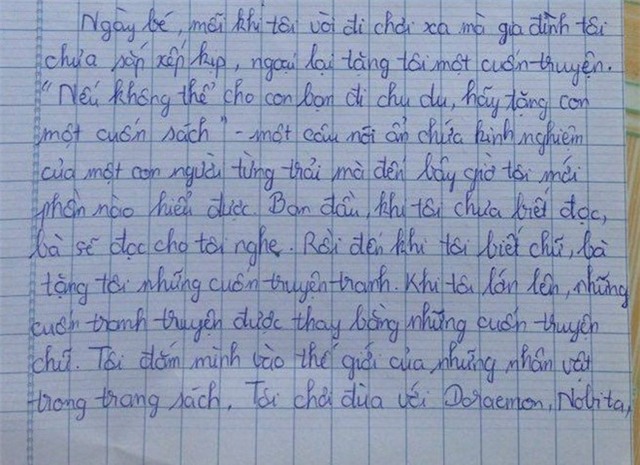 Ngày bé, mỗi khi tôi vòi đi chơi xa mà gia đình tôi
chưa sắp xếp kịp, ngoại lại tặng tôi một cuốn truyện.
"Nếu không thể cho con bạn đi chu du, hãy tặng con
một cuốn sách" - một câu nói ẩn chứa kinh nghiệm
của một con người từng trải mà đến bây giờ tôi mới
phần nào hiểu được. Ban đầu, khi tôi chưa biết đọc,
bà sẽ đọc cho tôi nghe. Rồi đến khi tôi biết chữ, bà
tặng tôi những cuốn truyện tranh. Khi tôi lớn lên, những
cuốn tranh truyện được thay bằng những cuốn truyện
chữ. Tôi đắm mình vào thế giới của những nhân vật
trong trang sách. Tôi chơi đùa với Doraemon, Nobita,